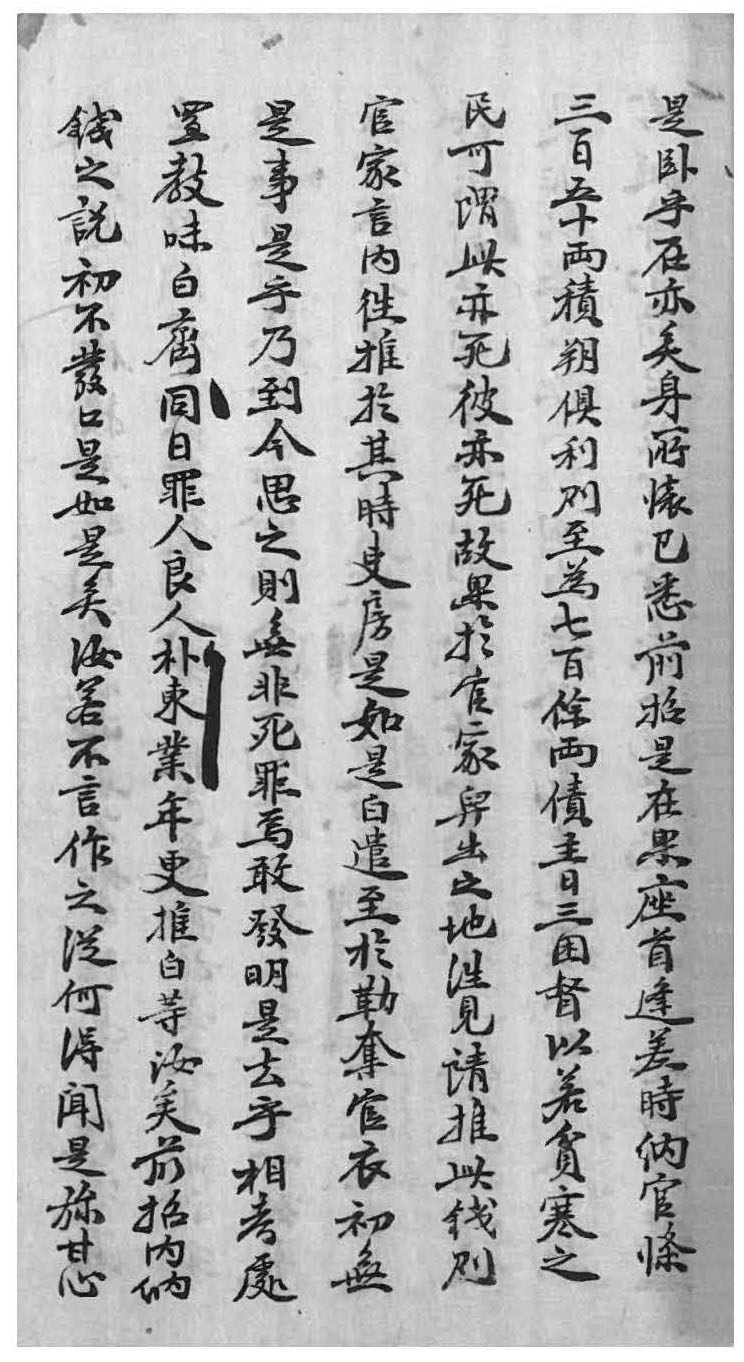 是臥乎在亦矣身所懐已悉前招是在果座首逢差時納官條
三百五十両積朔俱利則至為七百餘両債主日三困督以若貧寒之
民可謂此亦死彼亦死故果於官家舁出之地進見請推此錢則
官家言内徃推於其時吏房是如是白遣至於勒奪官衣初無
是事是乎乃到今思之則無非死罪焉敢發明是去乎相考處
置教味白齊同日罪人良人朴東業年更推白等汝矣前招内納
錢之説初不發口是如是矣汝若不言作之從何得聞是旀甘心